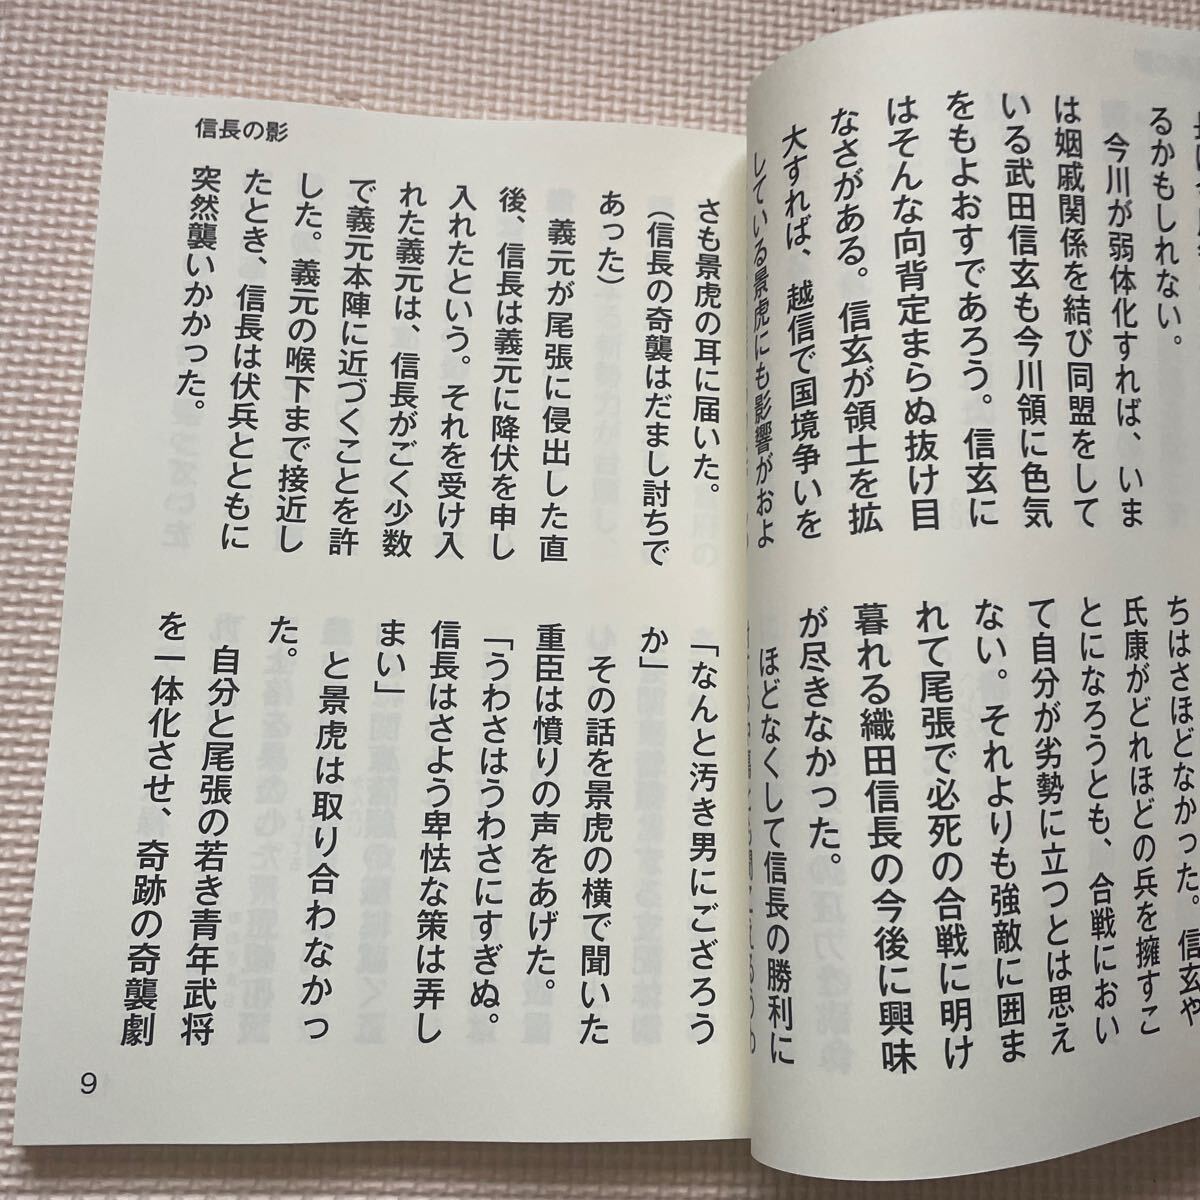 るかもしれない。
今川が弱体化すれば、いま
は姻戚関係を結び同盟をして
いる武田信玄も今川領に色気
をもよおすであろう。信玄に
はそんな向背定まらぬ抜け目
なさがある。信玄が領土を拡
大すれば、越信で国境争いを
している景虎にも影響がおよ
ちはさほどなかった。信玄や
氏康がどれほどの兵を擁すこ
とになろうとも、合戦におい
て自分が劣勢に立つとは思え
ない。それよりも強敵に囲ま
れて尾張で必死の合戦に明け
暮れる織田信長の今後に興味
が尽きなかった。
ほどなくして信長の勝利に
信長の影
さも景虎の耳に届いた。
(信長の奇襲はだまし討ちで
あった)
義元が尾張に侵出した直
後、信長は義元に降伏を申し
入れたという。それを受け入
れた義元は、信長がごく少数
で義元本陣に近づくことを許
した。義元の喉下まで接近し
たとき、信長は伏兵とともに
突然襲いかかった。
「なんと汚き男にござろう
か」
その話を景虎の横で聞いた
重臣は憤りの声をあげた。
「うわさはうわさにすぎぬ。
信長はさよう卑怯な策は弄し
まい」
と景虎は取り合わなかっ
た。
自分と尾張の若き青年武将
を一体化させ、奇跡の奇襲劇
9